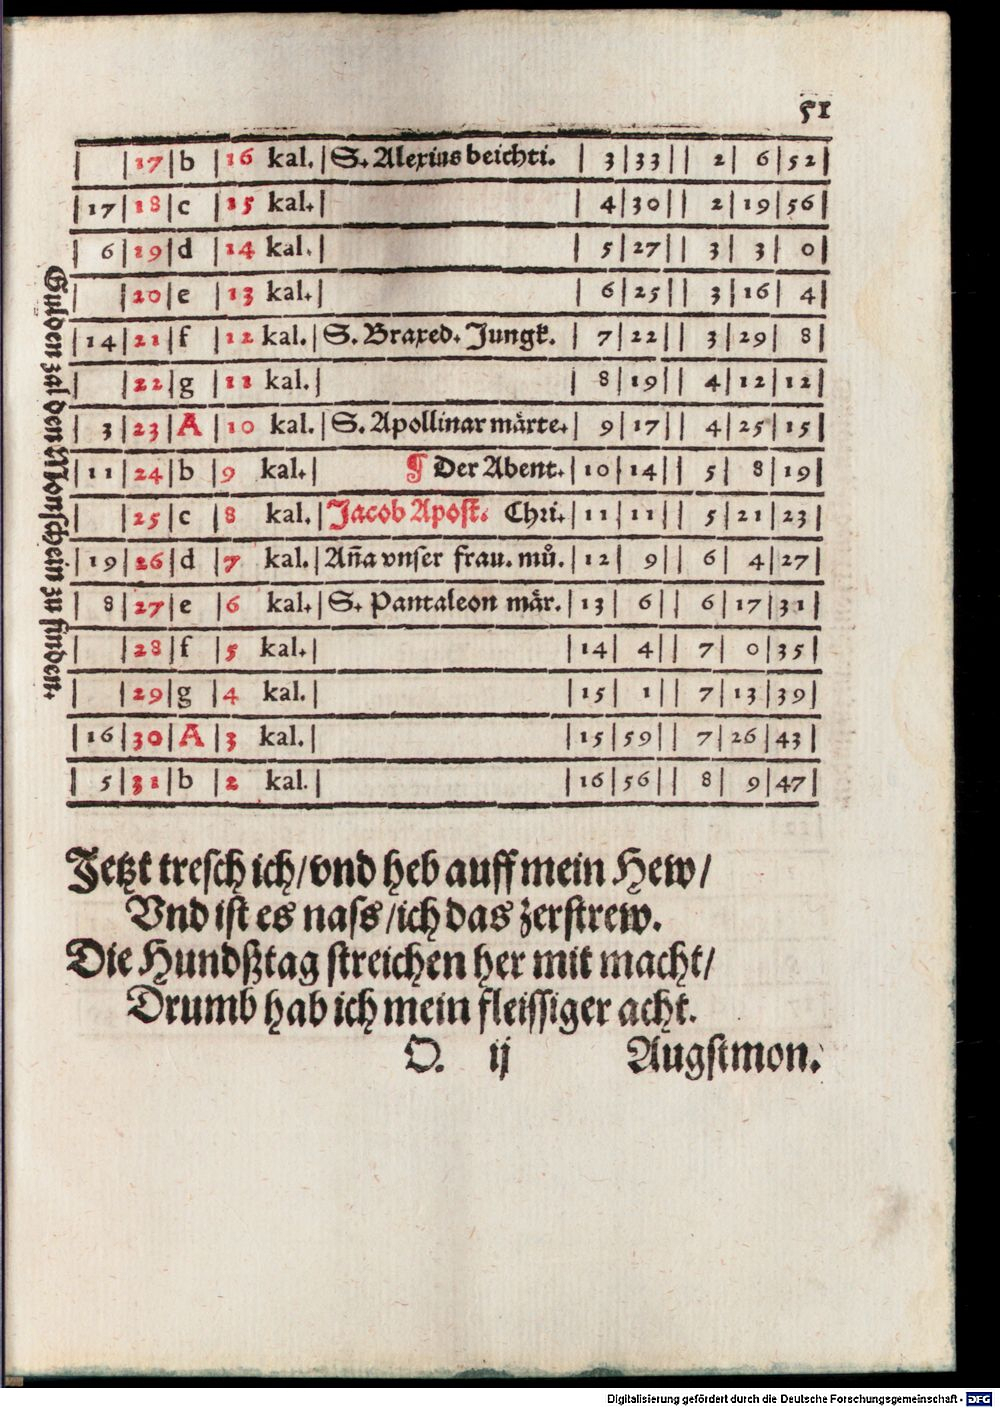 51
17 b 16 kal. S. Alexius beichti. 3 33 2 6 52
17 18 c 15 kal. 4 30 2 19 56
6 19 d 14 kal. 5 27 3 3 0
20 e 13 kal. 6 25 3 16 4
14 21 f 12 kal. S. Braxed. Jungk. 7 22 3 29 8
22 g 11 kal. 8 19 4 12 12
3 23 A 10 kal. S. Apollinar märte. 9 17 4 25 15
11 24 b 9 kal. ¶ Der Abent. 10 14 5 8 19
25 c 8 kal. Jacob Apost. Chri. 11 11 5 21 23
19 26 d 7 kal. Aña vnser frau. mů. 12 9 6 4 27
8 27 e 6 kal. S. Pantaleon mär. 13 6 6 17 31
28 f 5 kal. 14 4 7 0 35
29 g 4 kal. 15 1 7 13 39
16 30 A 3 kal. 15 59 7 26 43
5 31 b 2 kal. 16 56 8 9 47
Gulden zal den Monschein zu finden.
Jetzt tresch ich/vnd heb auff mein Hew/
Vnd ist es nass/ich das zerstrew.
Die Hundßtag streichen her mit macht/
Drumb hab ich mein fleissiger acht.
O. ij Augstmon.
Digitalisierung gefördert durch die Deutsche Forschungsgemeinschaft - DFG